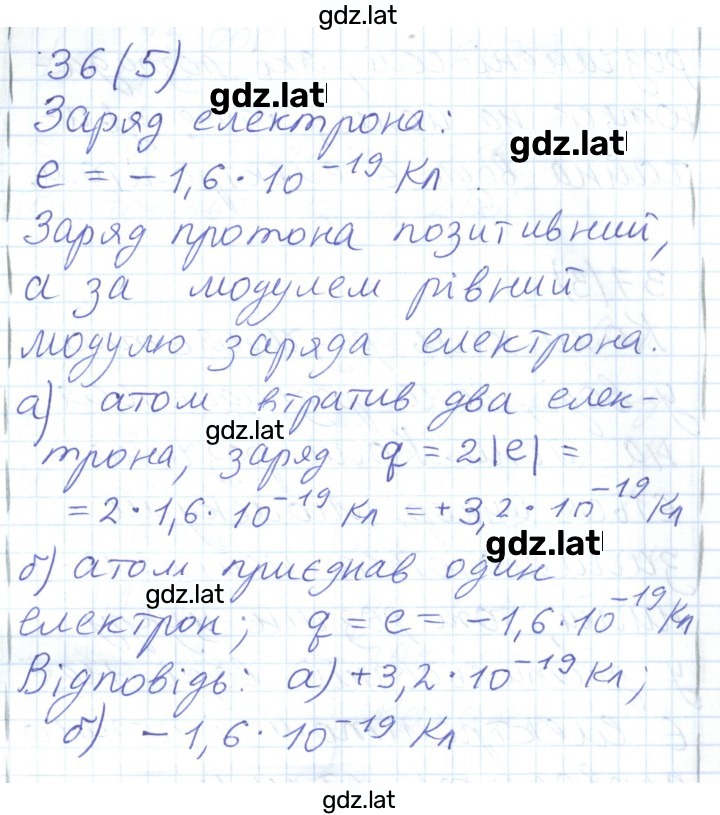 gdz.lat
36(5)
gdz.lat
Заряд електрона:
gdz.lat
e = -1,6·10⁻¹⁹ Кл.
Заряд протона позитивний,
а за модулем рівний
модулю заряда електрона.
а) атом втратив два елек-
gdz.lat
трона, заряд q = 2|e| =
= 2·1,6·10⁻¹⁹ Кл = +3,2·10⁻¹⁹ Кл
gdz.lat
б) атом приєднав один
gdz.lat
електрон; q = e = -1,6·10⁻¹⁹ Кл
Відповідь: а) +3,2·10⁻¹⁹ Кл;
б) -1,6·10⁻¹⁹ Кл
gdz.lat